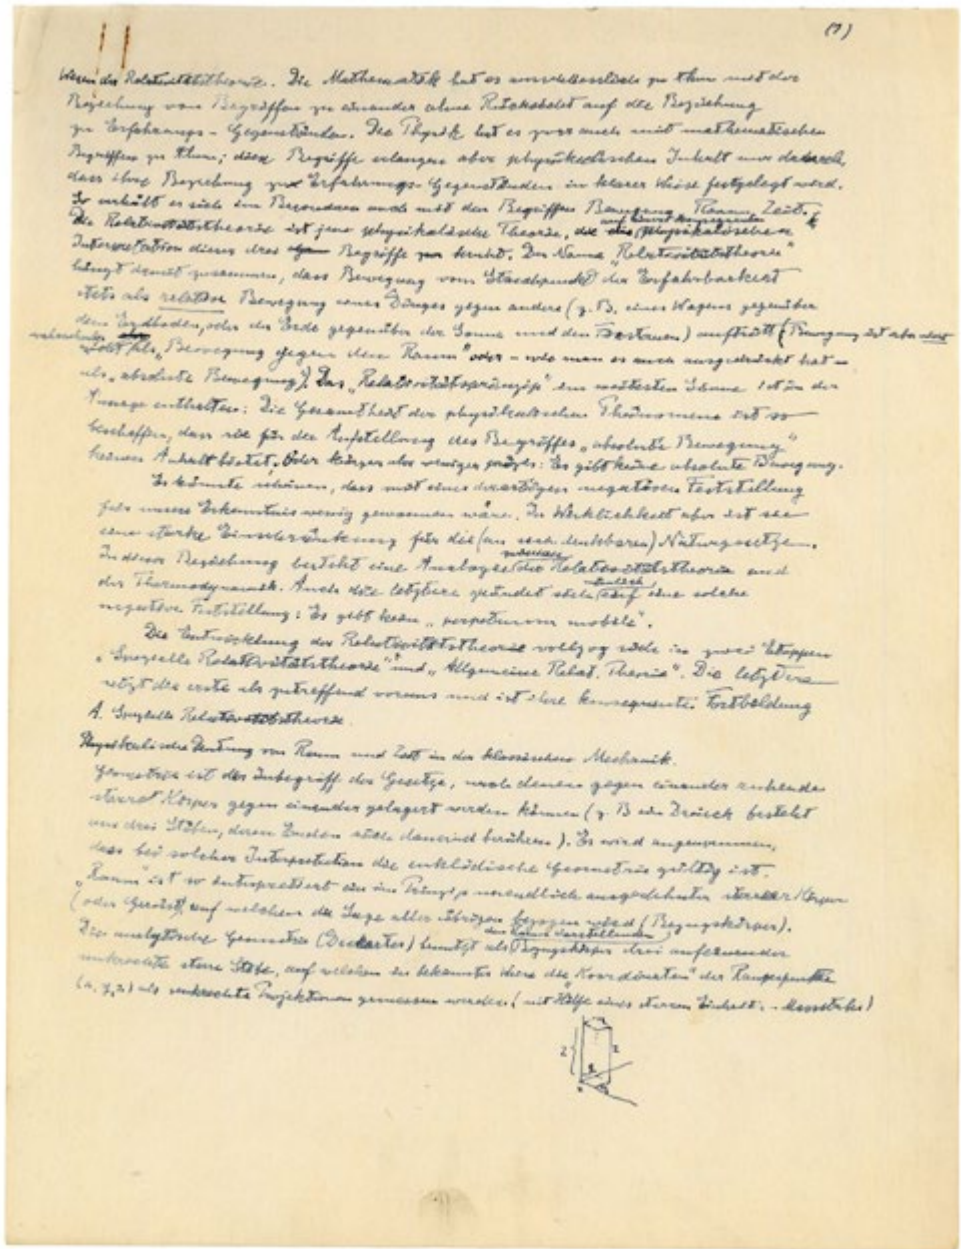 (1)
Wesen der Relativitätstheorie. Die Mathematik hat es ausschliesslich zu thun mit der
Beziehung von Begriffen zu einander ohne Rücksicht auf die Beziehung
zu Erfahrungs-Gegenständen. Die Physik hat es zwar auch mit mathematischen
Begriffen zu thun; diese Begriffe erlangen aber physikalischen Inhalt nur dadurch,
dass ihre Beziehung zu Erfahrungs-Gegenständen in klarer Weise festgelegt wird.
So verhält es sich im Besonderen auch mit den Begriffen Bewegung, Raum, Zeit.
Die Relativitätstheorie ist jene physikalische Theorie, die auf einer konsequenten physikalischen
Interpretation dieser drei Begriffe beruht. Der Name „Relativitätstheorie“
hängt damit zusammen, dass Bewegung vom Standpunkt der Erfahrbarkeit
stets als relative Bewegung eines Dinges gegen andere (z. B. eines Wagens gegenüber
dem Erdboden, oder der Erde gegenüber der Sonne und den Fixsternen) auftritt (Bewegung ist aber nicht
als „Bewegung gegen den Raum“ oder – wie man es auch ausgedrückt hat –
als „absolute Bewegung“). Das „Relativitätsprinzip“ im weitesten Sinne ist in der
Aussage enthalten: Die Gesamtheit der physikalischen Phänomene ist so
beschaffen, dass sie für die Aufstellung des Begriffes „absolute Bewegung“
keinen Anhalt bietet. Oder kürzer aber weniger präzis: Es gibt keine absolute Bewegung.
Es könnte scheinen, dass mit einer derartigen negativen Feststellung
für unsere Erkenntnis wenig gewonnen wäre. In Wirklichkeit aber ist sie
eine starke Einschränkung für die (an sich denkbaren) Naturgesetze.
In dieser Beziehung besteht eine Analogie zwischen der Relativitätstheorie und
der Thermodynamik. Auch die letztere gründet sich nämlich auf eine solche
negative Feststellung: Es gibt kein „perpetuum mobile“.
Die Entwicklung der Relativitätstheorie vollzog sich in zwei Etappen
„Spezielle Relativitätstheorie“ und „Allgemeine Relat. Theorie“. Die letztere
setzt die erste als zutreffend voraus und ist ihre konsequente Fortbildung
A. Spezielle Relativitätstheorie.
Physikalische Deutung von Raum und Zeit in der klassischen Mechanik.
Geometrie ist der Inbegriff der Gesetze, nach denen gegen einander ruhende
starre Körper gegen einander gelagert werden können (z. B ein Dreieck besteht
aus drei Stäben, deren Enden sich dauernd berühren). Es wird angenommen,
dass bei solcher Interpretation die euklidische Geometrie gültig ist.
„Raum“ ist so interpretiert ein im Prinzip unendlich ausgedehnter starrer Körper
(oder Gerüst) auf welchen die Lage aller übrigen bezogen wird (Bezugskörper).
Die analytische Geometrie (Descartes) benutzt als den Raum darstellenden Bezugskörper drei aufeinander
senkrechte starre Stäbe, auf welchen in bekannter Weise die „Koordinaten“ der Raumpunkte
(x, y, z) als senkrechte Projektionen gemessen werden (mit Hilfe eines starren Einheit-Massstabes)
z z